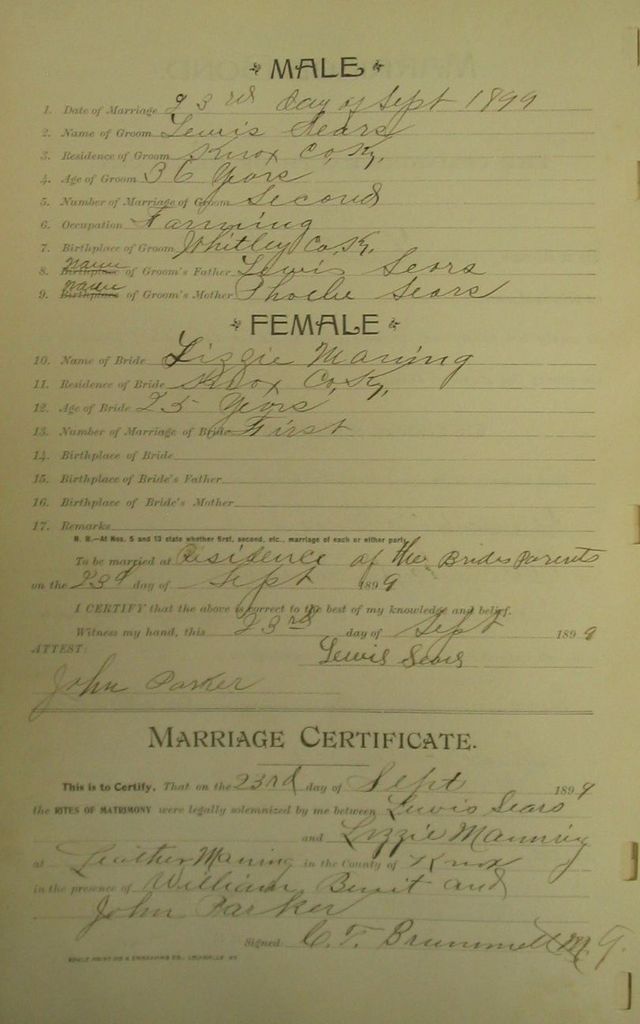 MALE
1. Date of Marriage 23rd day of Sept 1899
2. Name of Groom Lewis Sears
3. Residence of Groom Knox Co. Ky.
4. Age of Groom 36 Years
5. Number of Marriage of Groom Second
6. Occupation Farming
7. Birthplace of Groom Whitley Co. Ky.
8. Name of Groom's Father Lewis Sears
9. Name of Groom's Mother Phoebe Sears
FEMALE
10. Name of Bride Lizzie Maning
11. Residence of Bride Knox Co. Ky.
12. Age of Bride 25 Years
13. Number of Marriage of Bride First
14. Birthplace of Bride
15. Birthplace of Bride's Father
16. Birthplace of Bride's Mother
17. Remarks
N. B.—At Nos. 5 and 13 state whether first, second, etc., marriage of each or either party.
To be married at Residence of the Brides Parents
on the 23d day of Sept 1899
I CERTIFY that the above is correct to the best of my knowledge and belief.
Witness my hand, this 23rd day of Sept 1899
ATTEST: Lewis Sears
John Parker
MARRIAGE CERTIFICATE.
This is to Certify, That on the 23rd day of Sept 1899
the RITES OF MATRIMONY were legally solemnized by me between Lewis Sears
and Lizzie Manning
at Maning in the County of Knox
in the presence of William and
John Parker
Signed C. T. Brummett